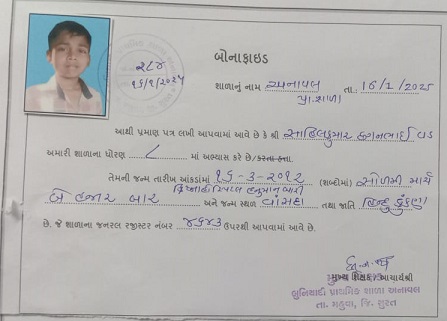 ૨૮૪
૧૬/૧/૨૦૨૫
બોનાફાઇડ
શાળાનું નામ અનાવલ તા. 16/1/2025
પ્રા.શાળા
આથી પ્રમાણ પત્ર લખી આપવામાં આવે છે કે શ્રી સાહિલકુમાર છગનભાઈ વડ
અમારી શાળાના ધોરણ ૮ માં અભ્યાસ કરે છે/કરતા હતા.
તેમની જન્મ તારીખ આંકડામાં ૧૬-૩-૨૦૧૨ (શબ્દોમાં) સોળમી માર્ચ
બે હજાર બાર અને જન્મ સ્થળ વાંસદા તથા જાતિ હિન્દુ કુંકણા
છે. જે શાળાના જનરલ રજીસ્ટર નંબર ૪૬૪૩ ઉપરથી આપવામાં આવે છે.
મુખ્ય શિક્ષક/આચાર્યશ્રી
બુનિયાદી પ્રાથમિક શાળા અનાવલ
તા. મહુવા, જિ. સુરત